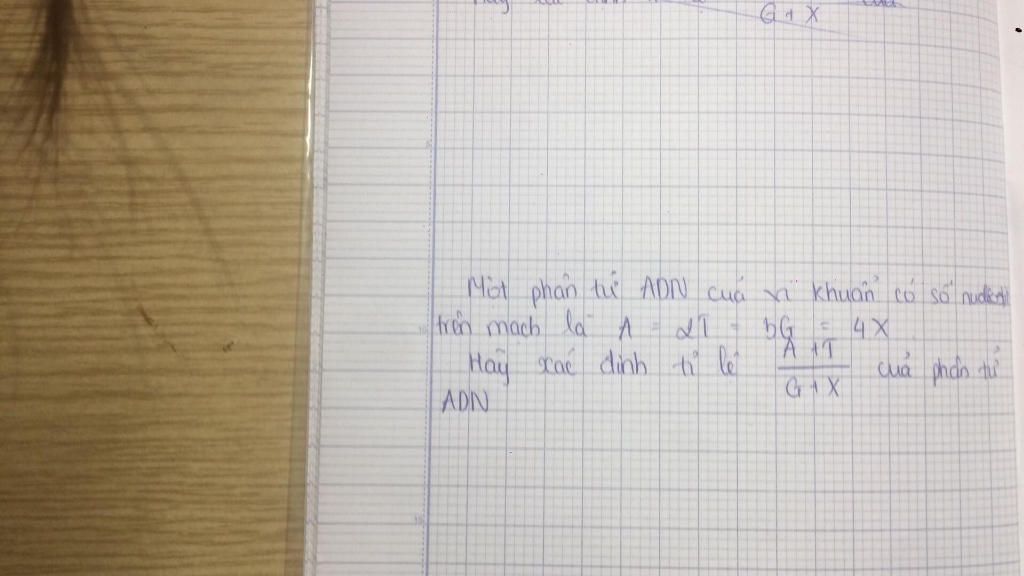 G + X
Một phân tử ADN của vi khuẩn có số nucleotit
trên mạch là A = 2T = 5G = 4X
Hãy xác định tỉ lệ A + T / G + X của phân tử
ADN